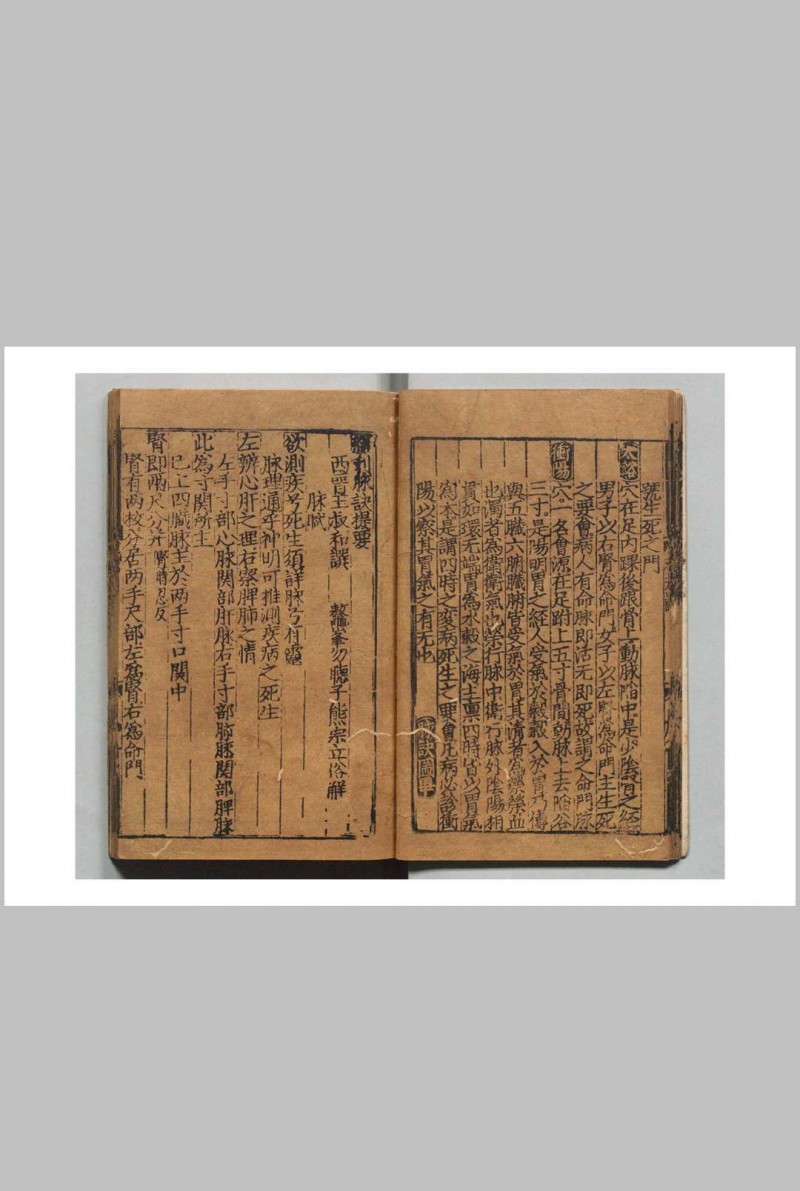 號生死之門
太谿穴在足內踝後跟骨上動脉陷中是少隂腎之經
男子以右腎為命門女子以左腎為命門主生死
之要會病人有命脉即活无即死故謂之命門脉
衝陽穴一名會源在足跗上五寸骨間動脉上去陷谷
三寸是陽明胃之經人受氣於穀穀入於胃乃傳
與五臟六腑臟腑皆受氣於胃其清者為榮榮血
也濁者為衛衛氣也榮行脉中衛行脉外隂陽相
貫如環无端胃為水穀之海主禀四時皆以胃氣
為本是謂四時之変病死生之要會凡病必診衝
陽以察其胃氣之有无也
脉訣圖畢
刊脉訣提要
西晋王叔和譔 鰲峯勿聽子熊宗立俗解
脉賦
欲測疾兮死生須詳脉兮有靈
脉理通乎神明可推測疾病之死生
左辨心肝之理右察脾肺之情
左手寸部心脉関部肝脉右手寸部肺脉関部脾脉
此為寸関所主
已上四臓脉主於两手寸口関中
腎即兩尺分并
腎有两枚分居两手尺部左為腎右為命門